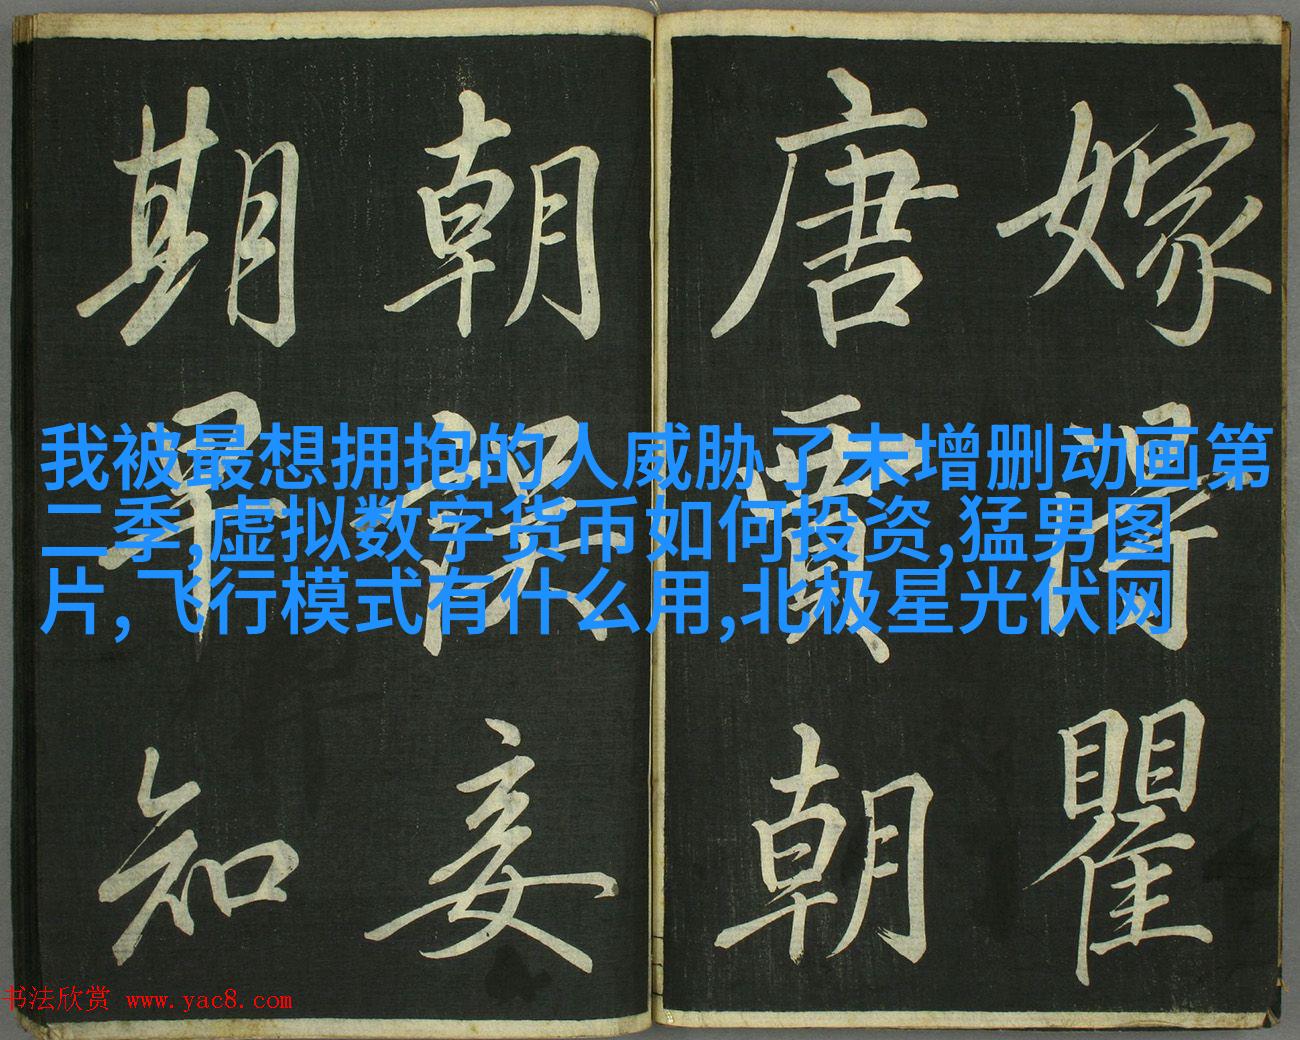 嫁得瞿
唐賈朝
朝誤妾
期早知
我被最想拥抱的人威胁了未增删动画第
二季,虚拟数字货币如何投资,猛男图
片,飞行模式有什么用,北极星光伏网
书法欣赏 www.yac8.com